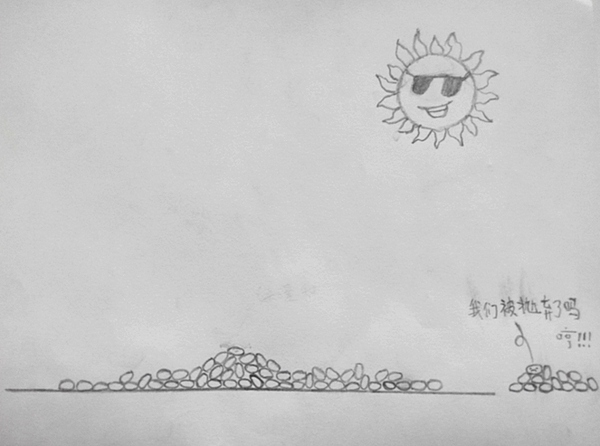 我们被抛弃了吗
哼!!!